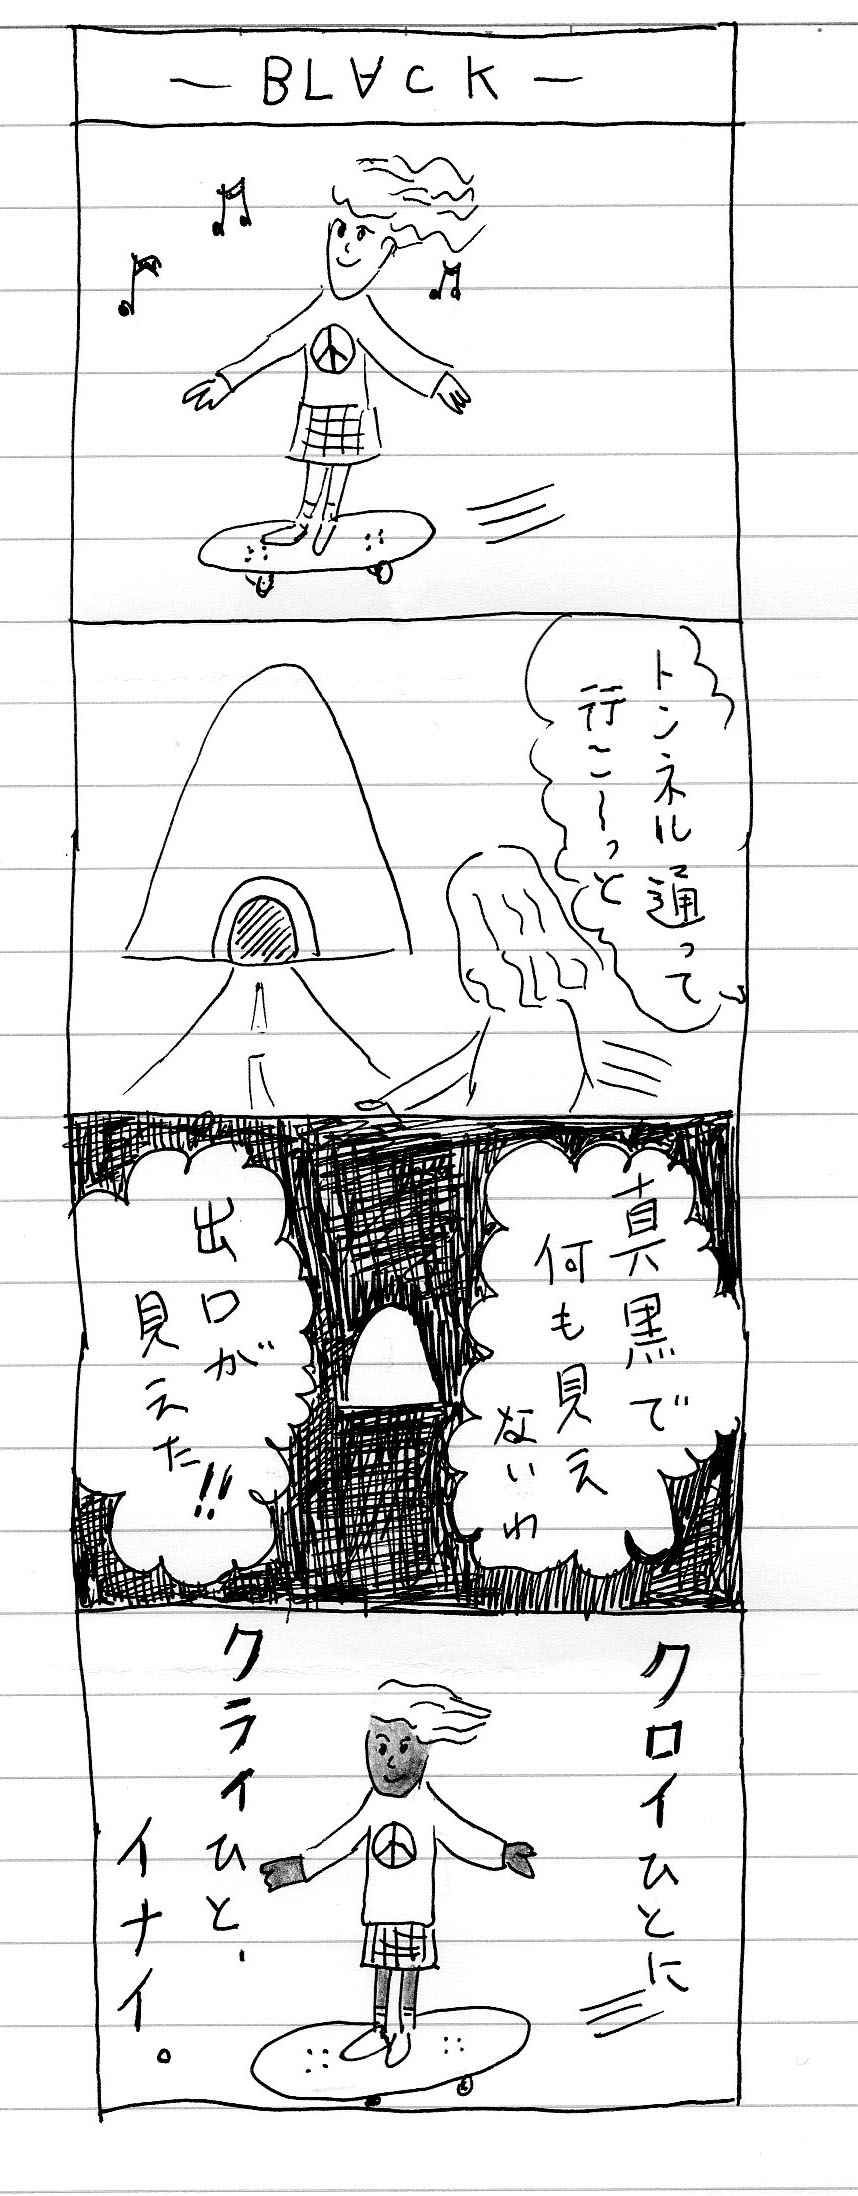 — BL∀CK —
トンネル通って
行こーっと
真黒で
何も見え
ないわ
出口が
見えた!!
クロイひとに
クライひと、
イナイ。